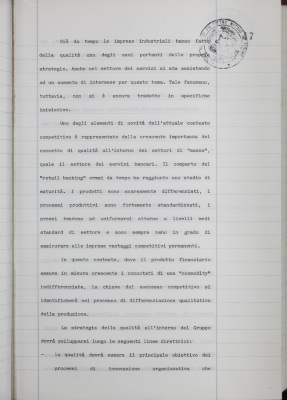 7
Già da tempo le imprese industriali hanno fatto
della qualità uno degli assi portanti della propria
strategia. Anche nel settore dei servizi si sta assistendo
ad un aumento di interesse per questo tema. Tale fenomeno,
tuttavia, non si è ancora tradotto in specifiche
iniziative.
Uno degli elementi di novità dell'attuale contesto
competitivo è rappresentato dalla crescente importanza del
concetto di qualità all'interno dei settori di "massa",
quale il settore dei servizi bancari. Il comparto del
"retail banking" ormai da tempo ha raggiunto uno stadio di
maturità. I prodotti sono scarsamente differenziati, i
processi produttivi sono fortemente standardizzati, i
prezzi tendono ad uniformarsi attorno a livelli medi
standard di settore e sono sempre meno in grado di
assicurare alle imprese vantaggi competitivi permanenti.
In questo contesto, dove il prodotto finanziario
assume in misura crescente i connotati di una "commodity"
indifferenziata, la chiave del successo competitivo si
identificherà nei processo di differenziazione qualitativa
della produzione.
La strategia della qualità all'interno del Gruppo
dovrà svilupparsi lungo le seguenti linee direttrici:
- la qualità dovrà essere il principale obiettivo dei
processi di innovazione organizzativa che